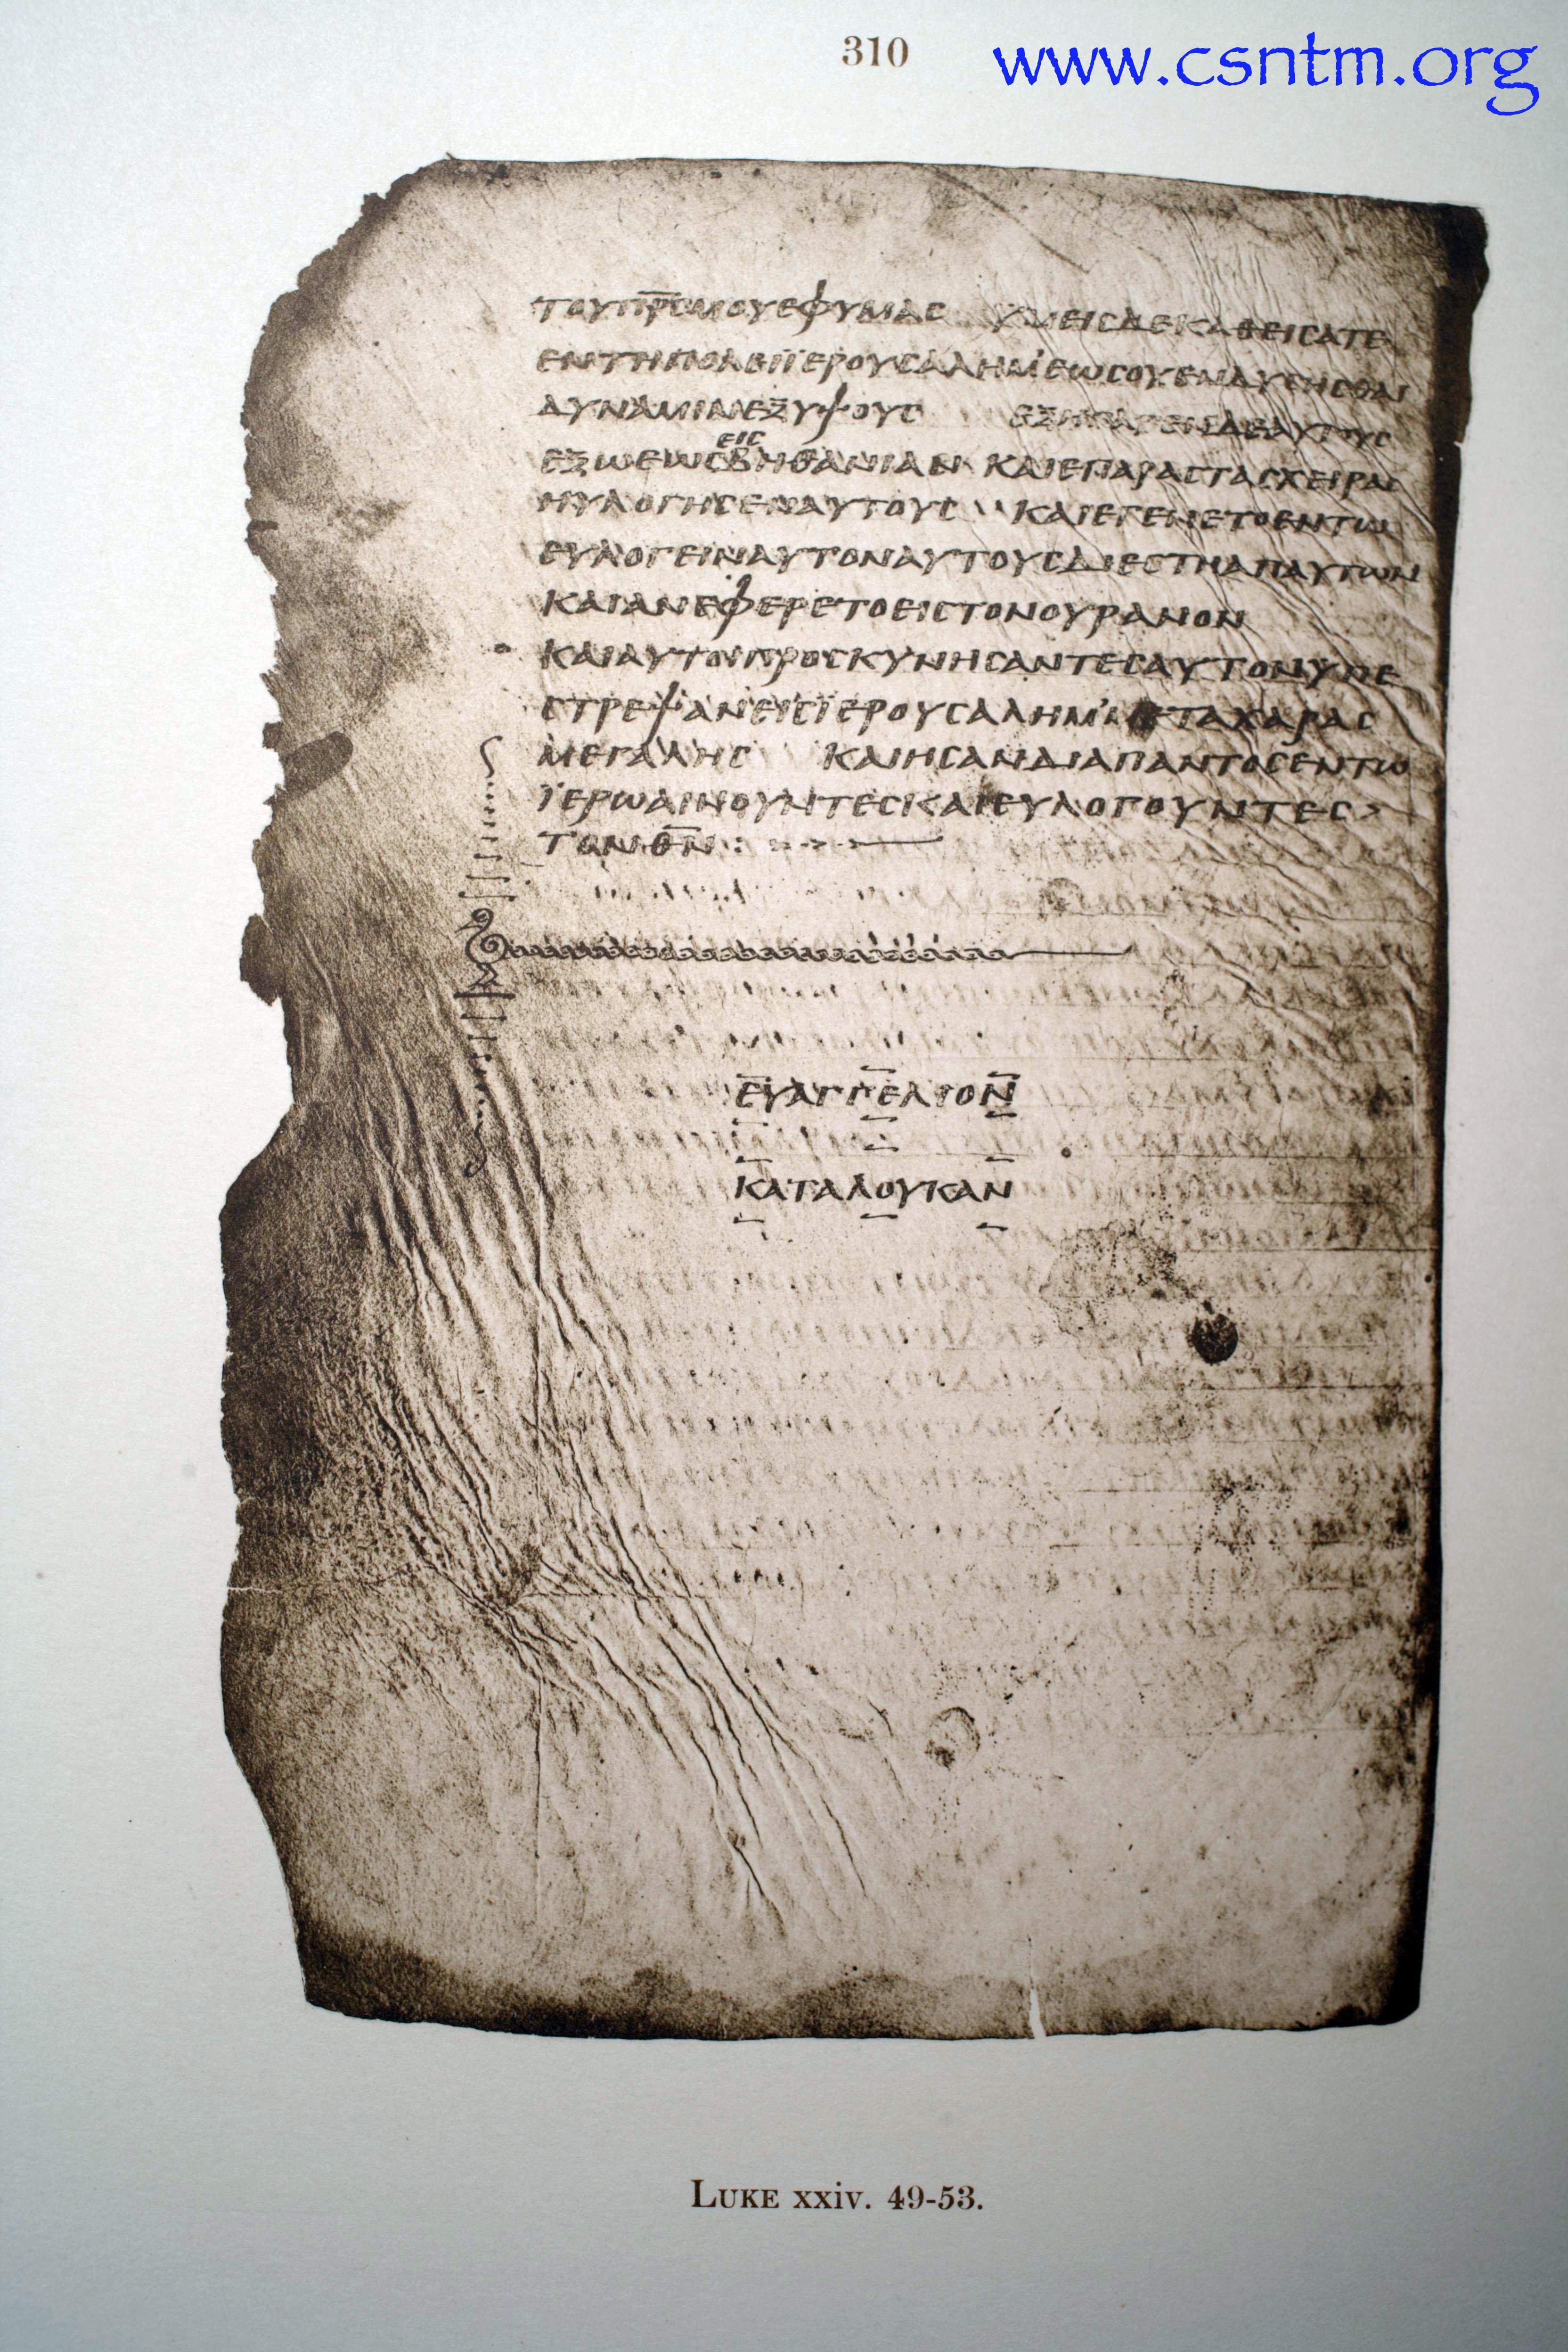 310
www.csntm.org
ΤΟΥΠΡ̅Ϲ̅ΜΟΥΕΦΥΜΑϹ ΥΜΕΙϹΔΕΚΑΘΕΙϹΑΤΕ
ΕΝΤΗΠΟΛΕΙΪΕΡΟΥϹΑΛΗΜ'ΕωϹΟΥΕΝΔΥϹΗϹΘΑΙ
ΔΥΝΑΜΙΝΕΞΥΨΟΥϹ ΕΞΗΓΑΓΕΝΔΕΑΥΤΟΥϹ
ΕΙϹ
ΕΞωΕωϹΒΗΘΑΝΙΑΝ ΚΑΙΕΠΑΡΑϹΤΑϹΧΕΙΡΑϹ
ΗΥΛΟΓΗϹΕΝΑΥΤΟΥϹ ΚΑΙΕΓΕΝΕΤΟΕΝΤω
ΕΥΛΟΓΕΙΝΑΥΤΟΝΑΥΤΟΥϹΔΙΕϹΤΗΑΠΑΥΤωΝ
ΚΑΙΑΝΕΦΕΡΕΤΟΕΙϹΤΟΝΟΥΡΑΝΟΝ
ΚΑΙΑΥΤΟΙΠΡΟϹΚΥΝΗϹΑΝΤΕϹΑΥΤΟΝΥΠΕ
ϹΤΡΕΨΑΝΕΙϹΪΕΡΟΥϹΑΛΗΜ'ΜΕΤΑΧΑΡΑϹ
ΜΕΓΑΛΗϹ ΚΑΙΗϹΑΝΔΙΑΠΑΝΤΟϹΕΝΤω
ΪΕΡωΑΙΝΟΥΝΤΕϹΚΑΙΕΥΛΟΓΟΥΝΤΕϹ>
ΤΟΝΘ̅Ν̅:
ΕΥΑΓΓΕΛΙΟΝ
ΚΑΤΑΛΟΥΚΑΝ
LUKE xxiv. 49-53.